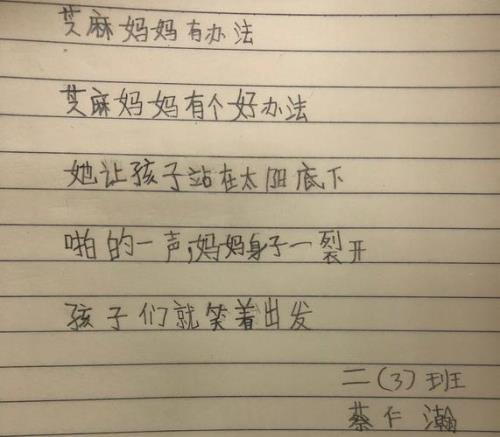 芝麻妈妈有办法
芝麻妈妈有个好办法
她让孩子站在太阳底下
啪的一声,妈妈身子一裂开
孩子们就笑着出发
二(3)班
蔡仁瀚